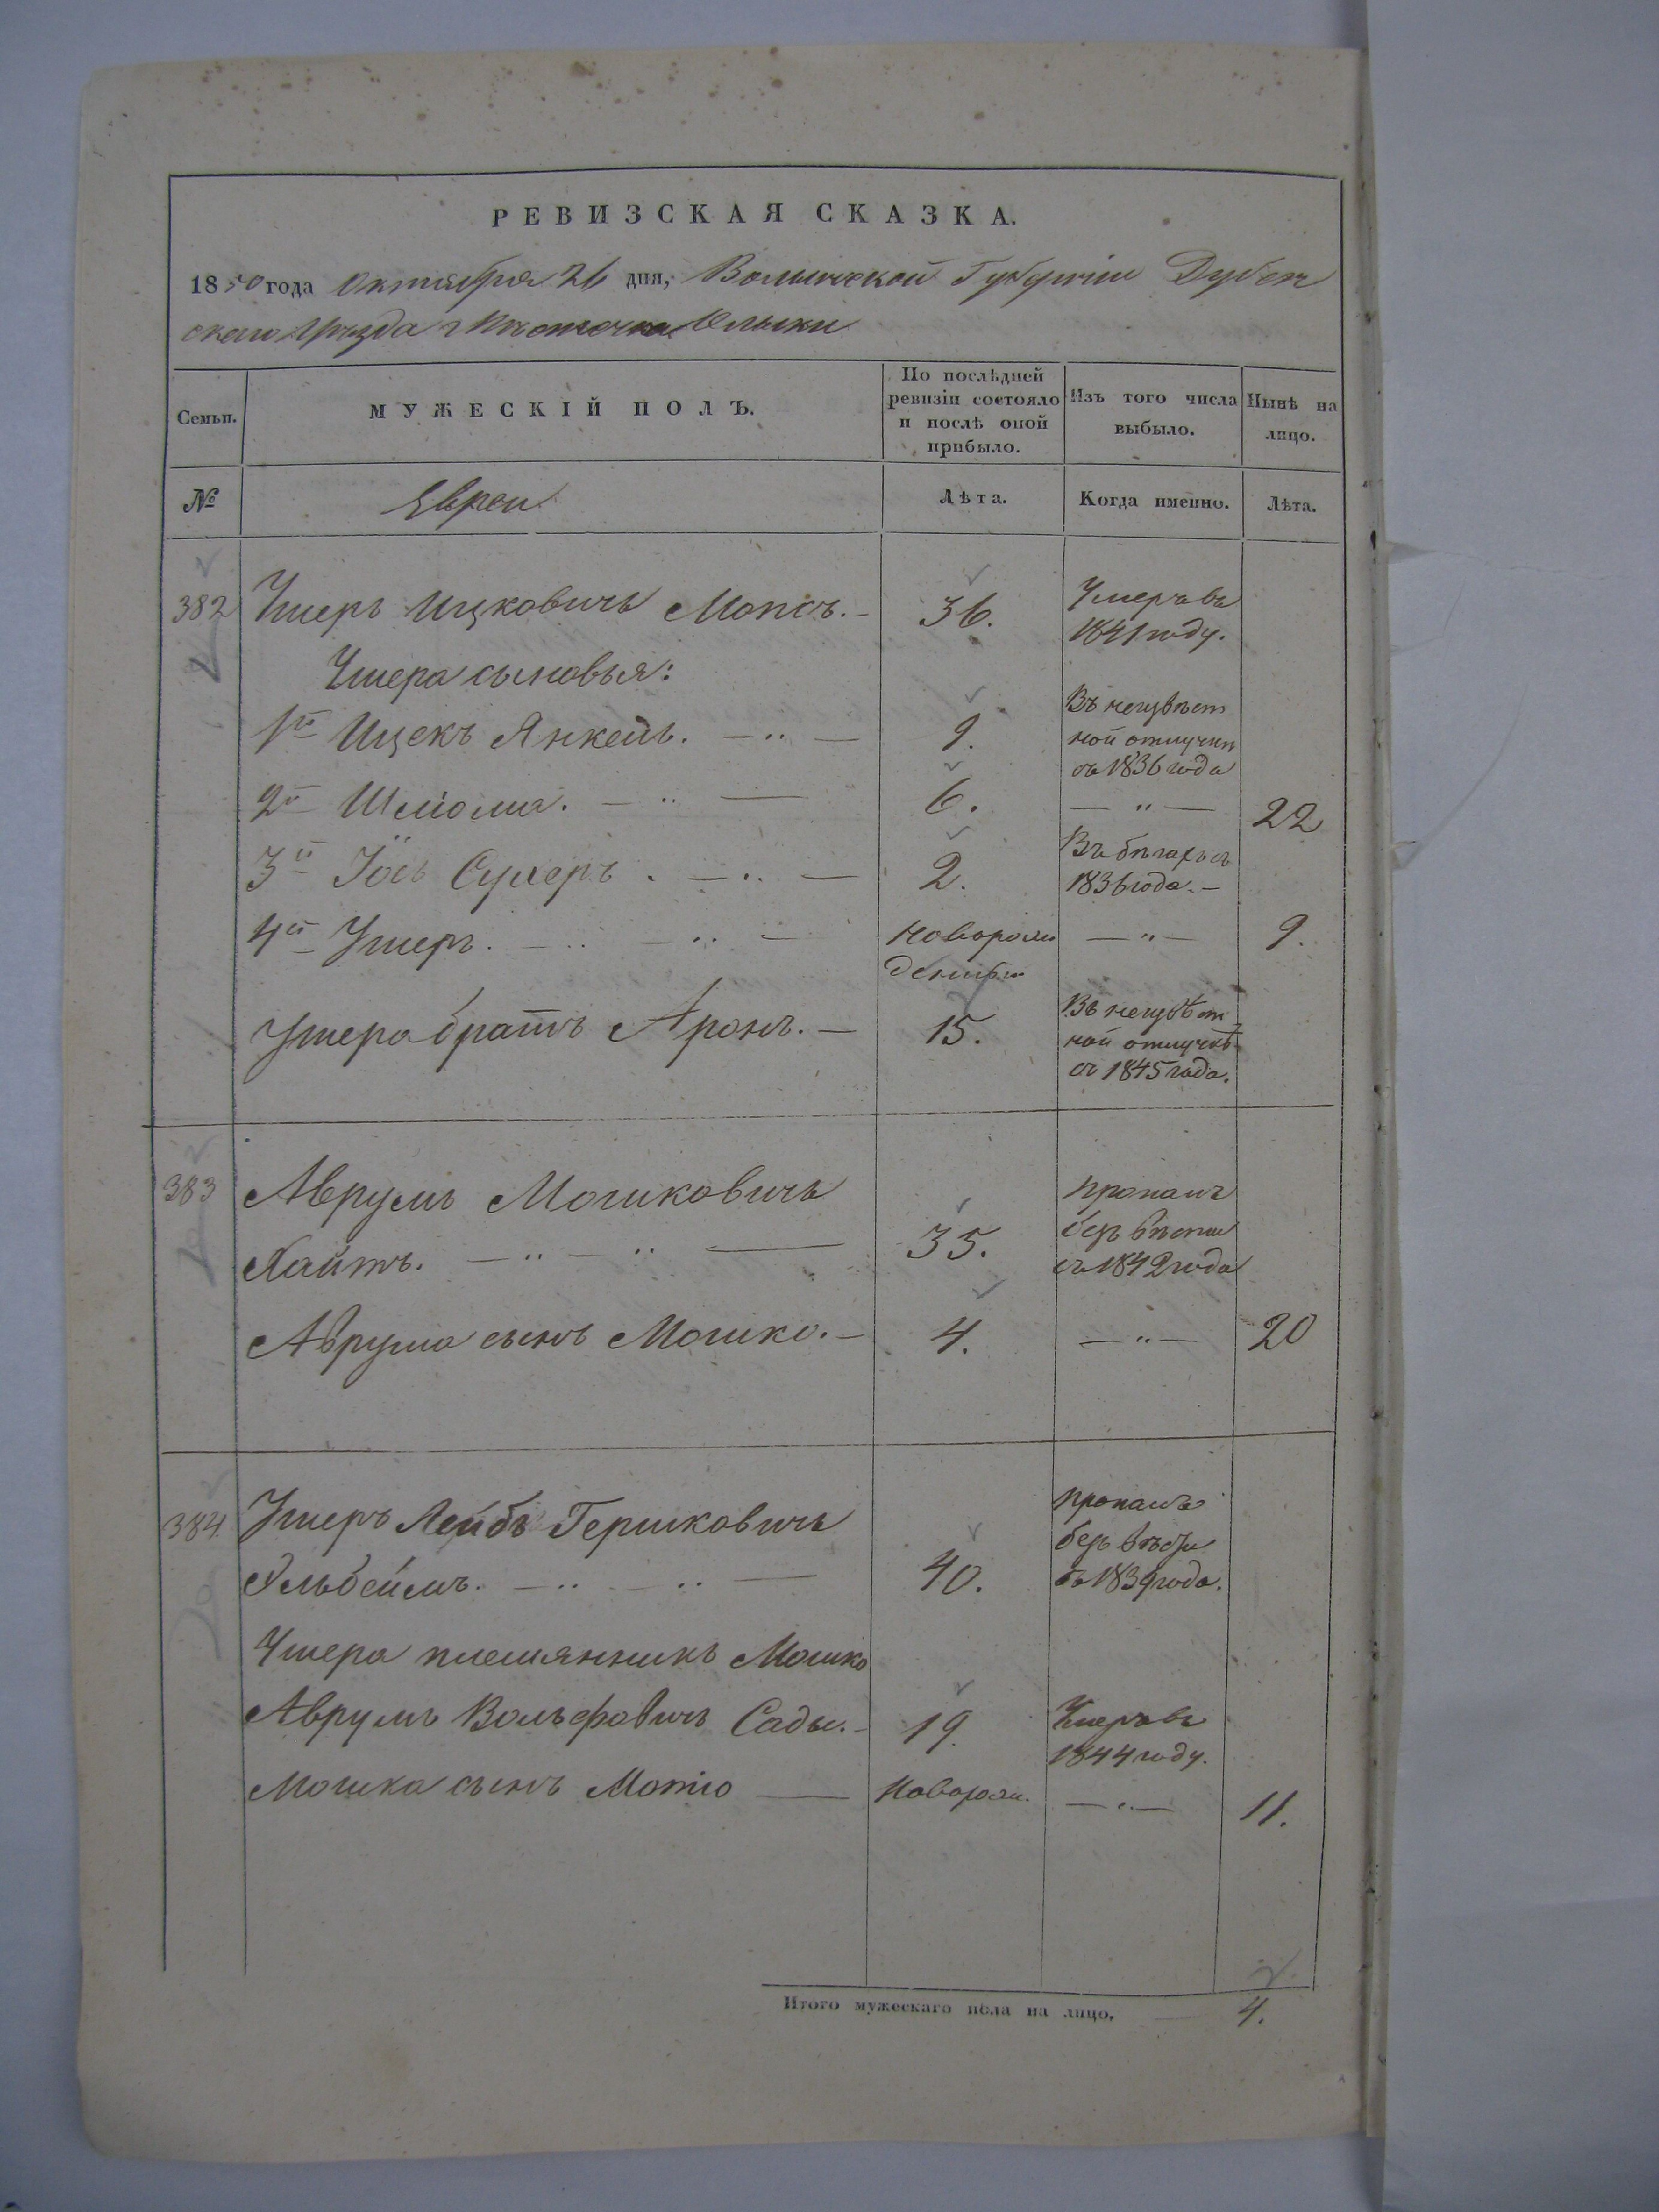 РЕВИЗСКАЯ СКАЗКА.
1850 года Октября 26 дня, Волынской Губерніи Дубен
скаго Уѣзда Мѣстечка Олыки
Семьи.
МУЖЕСКІЙ ПОЛЪ.
По послѣдней
ревизіи состояло
и послѣ оной
прибыло.
Изъ того числа
выбыло.
Нынѣ на
лицо.
№
Евреи
Лѣта.
Когда именно.
Лѣта.
382 Ушеръ Ицковичъ Мопсъ. 36. Умеръ въ
1841 году.
Ушера сыновья:
1й Ицекъ Янкель. 9. Въ неизвѣст
ной отлучки
съ 1836 года
2й Шліома. 6. — " — 22
3й Іось Сумеръ. 2. Въ бѣгахъ съ
1836 года.
4й Ушеръ. новорож
денный — " — 9.
Ушера братъ Аронъ. 15. Въ неизвѣст
ной отлучкѣ
съ 1845 года.
383 Аврумъ Мошковичъ пропалъ
Хайтъ. 35. безъ вѣсти
съ 1842 года
Аврума сынъ Мошко. 4. — " — 20
384 Ушеръ Лейбъ Гершковичъ пропалъ
безъ вѣсти
Ольбеймъ. 40. съ 1839 года.
Ушера племянникъ Мошко
Аврумъ Вольфовичъ Сады. 19. Умеръ въ
1844 году.
Мошка сынъ Мотіо Новорож. — " — 11.
Итого мужескаго пола на лицо, 4.